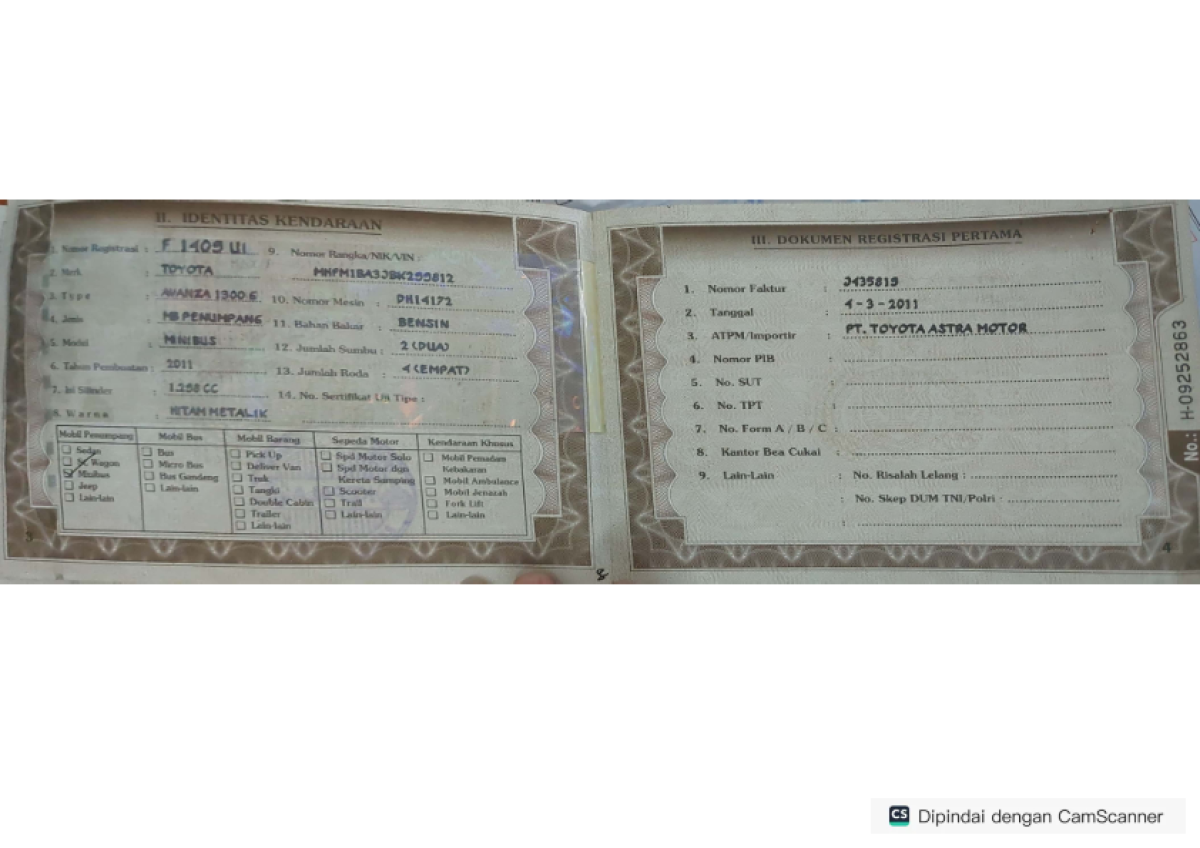 II. IDENTITAS KENDARAAN
1. Nomor Registrasi : F 1409 UI
2. Merk : TOYOTA
3. Type : AVANZA 1300 G
4. Jenis : MB PENUMPANG
5. Model : MINIBUS
6. Tahun Pembuatan : 2011
7. Isi Silinder : 1.298 CC
8. Warna : HITAM METALIK
9. Nomor Rangka/NIK/VIN :
10. Nomor Mesin :
11. Bahan Bakar : BENSIN
12. Jumlah Sumbu : 2 (DUA)
13. Jumlah Roda : 4 (EMPAT)
14. No. Sertifikat Uji Tipe :
Mobil Penumpang
Sedan
St. Wagon
Minibus
Jeep
Lain-lain
Mobil Bus
Bus
Micro Bus
Bus Gandeng
Lain-lain
Mobil Barang
Pick Up
Deliver Van
Truk
Tangki
Double Cabin
Trailer
Lain-lain
Sepeda Motor
Spd Motor Solo
Spd Motor dgn
Kereta Samping
Scooter
Trail
Lain-lain
Kendaraan Khusus
Mobil Pemadam
Kebakaran
Mobil Ambulance
Mobil Jenazah
Fork Lift
Lain-lain
3
III. DOKUMEN REGISTRASI PERTAMA
1. Nomor Faktur : 3435819
2. Tanggal : 4-3-2011
3. ATPM/Importir : PT. TOYOTA ASTRA MOTOR
4. Nomor PIB :
5. No. SUT :
6. No. TPT :
7. No. Form A / B / C :
8. Kantor Bea Cukai :
9. Lain-Lain : No. Risalah Lelang :
: No. Skep DUM TNI/Polri :
:
4
No.: H-09252863
CS Dipindai dengan CamScanner